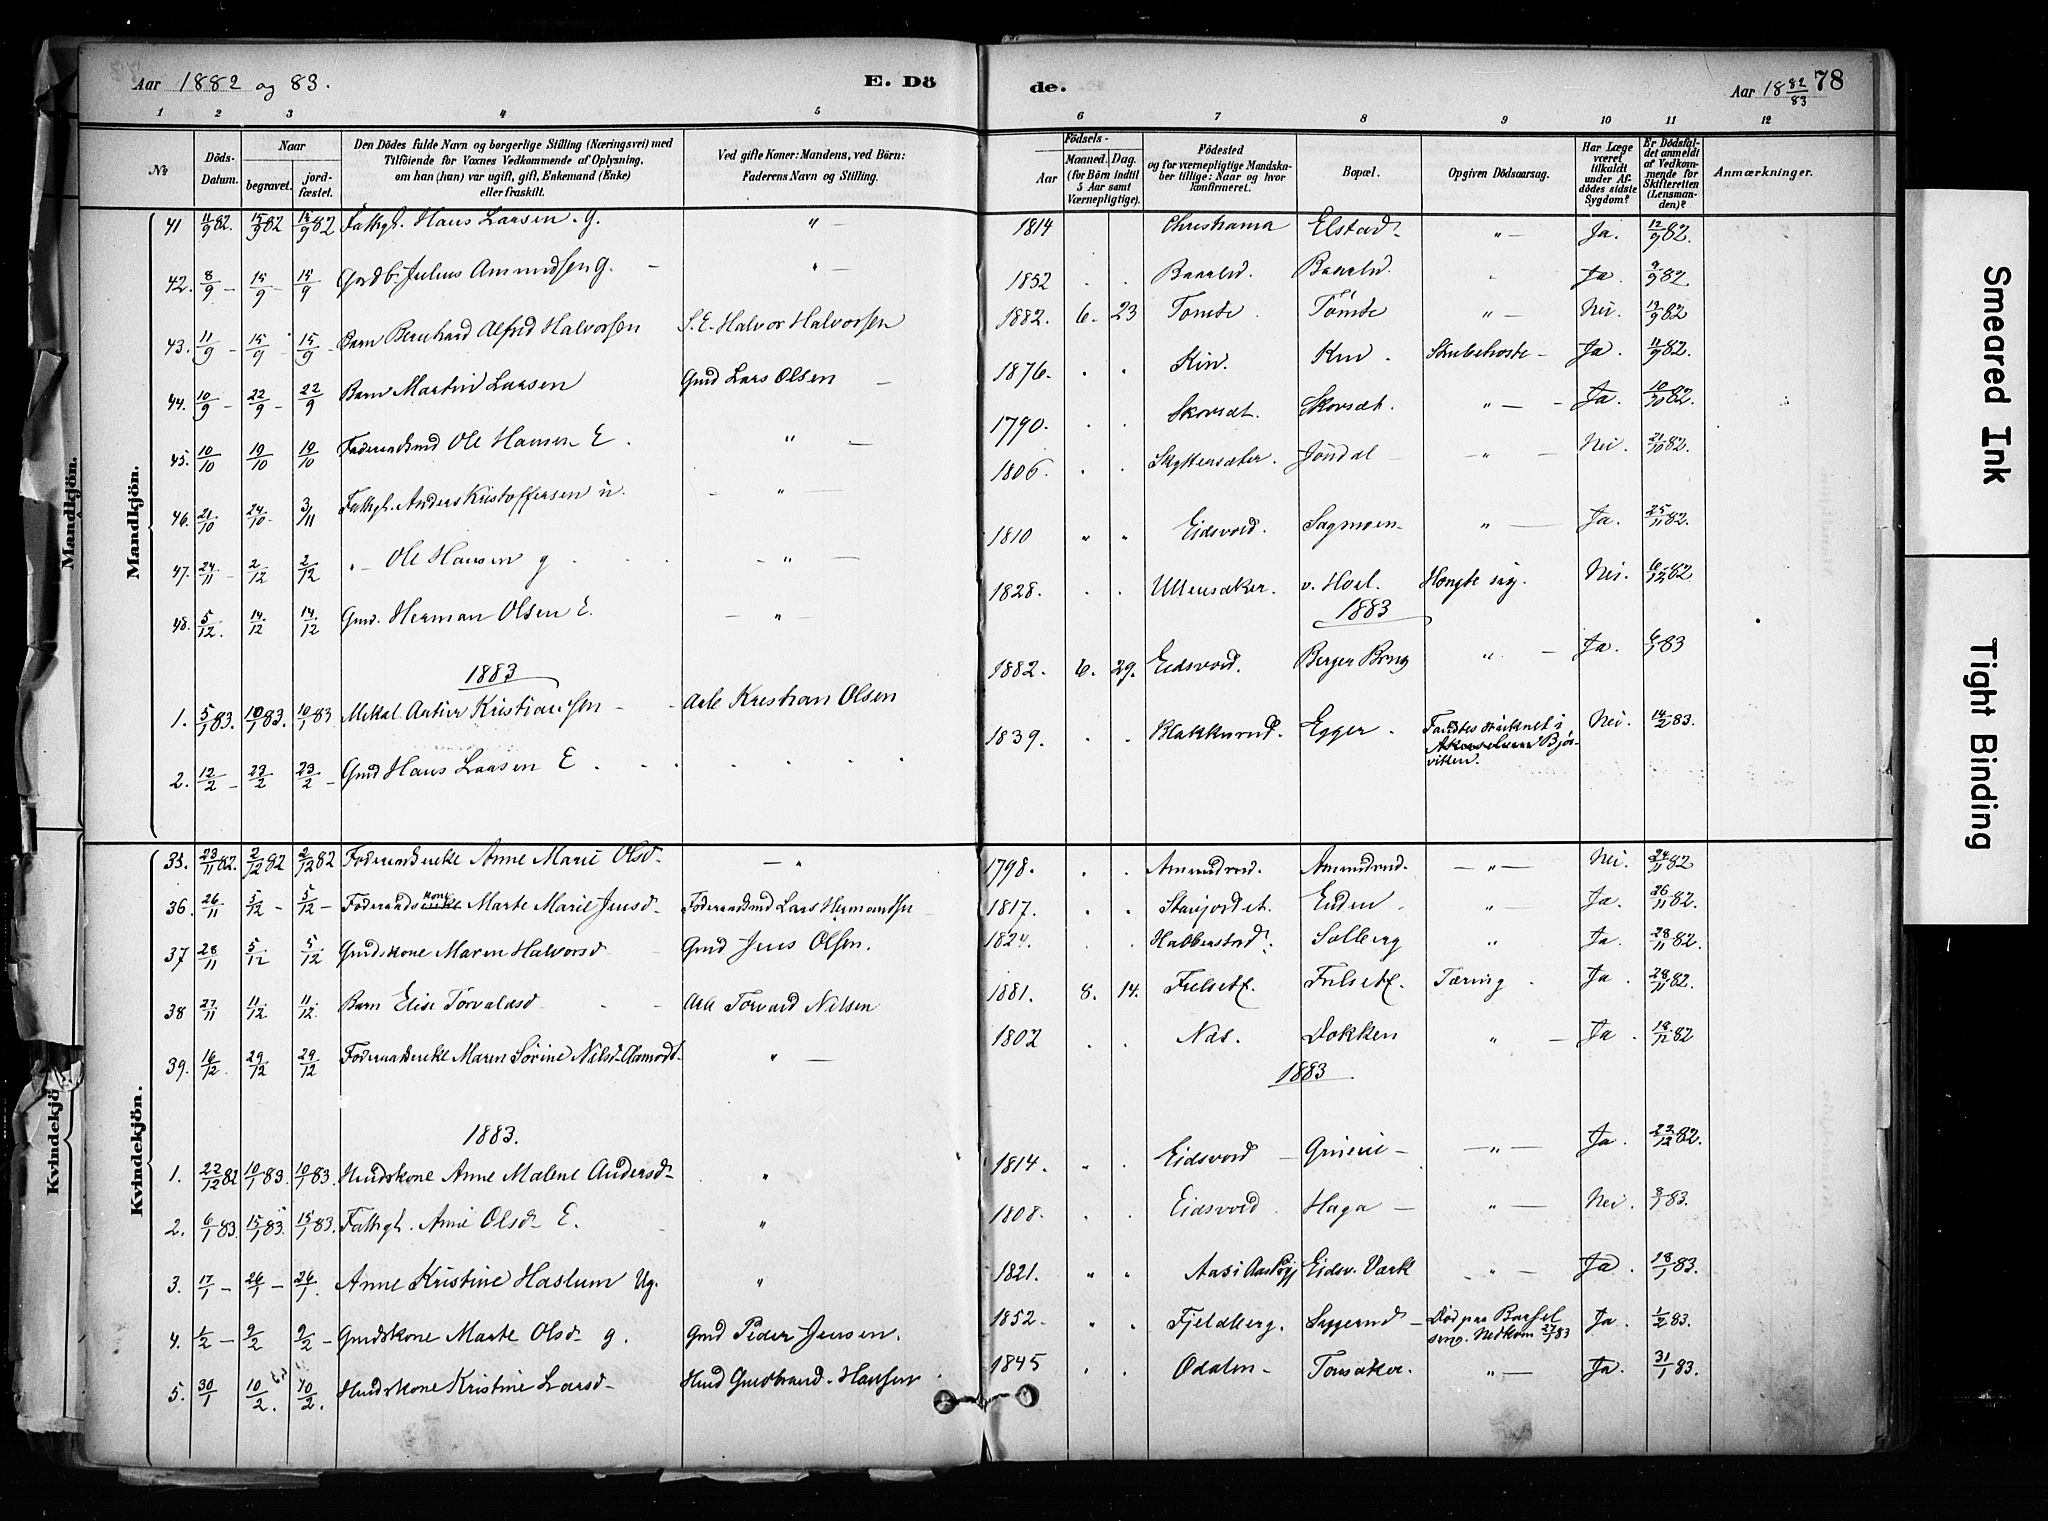 Aar 1882 og 83.
E. Dö
de.
Aar 18 82/83 78
1 2 3 4 5 6 7 8 9 10 11 12
№
Döds-Datum.
Naar
begravet.
jord-fæstet.
Den Dödes fulde Navn og borgerlige Stilling (Næringsvei) med
Tilföiende for Voxnes Vedkommende af Oplysning,
om han (hun) var ugift, gift, Enkemand (Enke)
eller fraskilt.
Ved gifte Koner: Mandens, ved Börn:
Faderens Navn og Stilling.
Födsels-
Aar
Maaned. Dag.
(for Börn indtil
5 Aar samt
Værnepligtige).
Födested
og for værnepligtige Mandska-
ber tillige: Naar og hvor
konfirmeret.
Bopæl.
Opgiven Dödsaarsag.
Har Læge
været
tilkaldt
under Af-
dödes sidste
Sygdom?
Er Dödsfal-
det anmeldt
af Vedkom-
mende for
Skifteretten
(Lensman-
den)?
Anmærkninger.
Mandkjön.
Mandkjön.
41 11/9 82. 15/9 82 15/9 82 Fattigl. Hans Larsen. g. " — 1814 Christiania Elstad " — Ja. 12/9 82.
42. 8/9 — 15/9 — 15/9 Gordb. Julius Amundsen g. — " — 1852 . . Ja. 9/9 82
43. 11/9 — 15/9 — 15/9 — Barn Bernhard Alfred Halvorsen S. E. Halvor Halvorsen 1882. 6. 23 Tomte. Tömte " — Nei. 12/9 82
44. 10/9 — 22/9 — 22/9 Barn Martin Larsen Gmd Lars Olsen — 1876. . . Skrubehoste — Ja. 11/9 82.
45. 10/10 19/10 19/10 Foderaadsmd Ole Hansen E. " — 1790. . . Skorsæt. Skorsæt. " — Ja. 10/10 82.
46. 21/10 24/10 3/11 Fattigl. Anders Kristoffersen u. — " — 1806. . . Jöndal — " — Nei. 21/10 82.
47. 24/11 — 2/12 2/12 " — Ole Hansen g . " — 1810 " " Eidsvold. Sagmoen — " — Ja. 25/11 82.
48. 5/12. 14/12 14/12 Gmd. Herman Olsen E. — " — 1828. . . Ullensaker. v. Hoel. Hængte sig. Nei. 6/12 82
1883
1883
1. 5/1 83. 10/1 83. 10/1 83 Mikal Anton Kristiansen — Arb. Kristian Olsen 1882. 6. 29. Eidsvold. Berger Brug " — Ja. 6/1 83
2. 12/2 — 23/2 23/2 — Gmd Hans Larsen E . . . . . 1839. . . Blakkerud. Egger. Fandtes druknet i Bjør-
vikken. Nei. 14/2 83.
Kvindekjön.
Kvindekjön.
35. 23/11 82. 2/12 82 2/12 82 Foderaadsenke Anne Marie Olsd. — " 1798. . . Amundrud. Amundrud. — " — Nei. 24/11 82
36. 26/11 5/12 — 5/12 — Foderaadskone Marte Marie Jensd. Foderaadsmd Lars Hermandsen 1817. . . Enden. " — Ja. 26/11 82.
37 28/11 5/12 5/12 Gmdskone Maren Halvorsd Gmd Jens Olsen. 1824. . . Habberstad. Solberg " Ja. 28/11 82.
38 27/11 11/12 11/12. Barn Elise Torvaldsd — Arb Torvard Nilsen 1881. 8. 14. Tæring. Ja. 28/11 82.
39. 16/12 29/12 29/12 Foderaadsenke Maren Sørine Nilsd. Aamodt — " — 1802 . . Næs. Dokken " — Ja. 18/12 82
1883
1883.
1. 22/12 82 10/1 83. 10/1 83. Hmdskone Anne Malene Andersd — " 1814. " . Eidsvold — — " — Ja. 23/12 82.
2. 6/1 83. 15/1 83. 15/1 83. Fattigl. Anne Olsd. E. " 1808. . . Eidsvold Haga — " — Nei. 8/1 83.
3. 17/1 — 26/1 — 26/1. Anne Kristine Haslum Ug. " 1821. " " Aas i Eidsv. Værk — " — Ja. 18/1 83.
4. 1/2 — 9/2 9/2 — Gmdskone Marte Olsd g. Gmd Peder Jensen. 1852. " . Fjeldberg. Død paa Barsel
seng. Nedkom 27/1 83 Ja. 1/2 83.
5. 30/1 10/2. 10/2. Hmdskone Kristine Larsd. Hmd Gudbrand Hansen 1845 . . Odalen — Tomsaker. " — Ja. 31/1 83.
Smeared Ink
Tight Binding